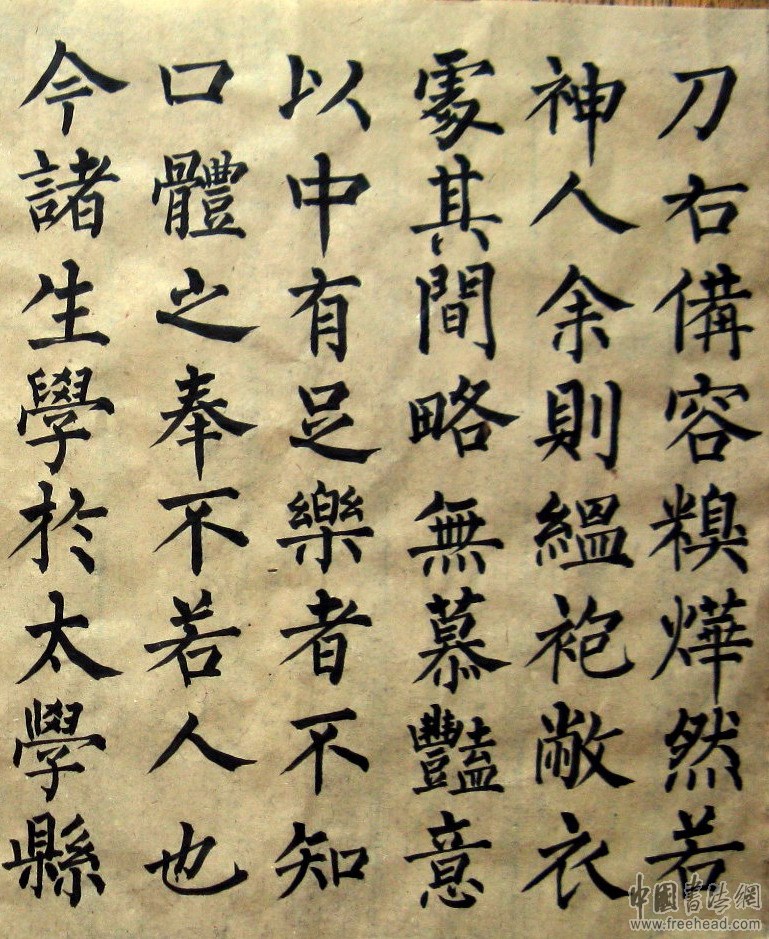 刀右備容糗燁然若
神人余則縕袍敞衣
處其間略無慕豔意
以中有足樂者不知
口體之奉不若人也
今諸生學於太學縣
中國書法網
www.freehead.com